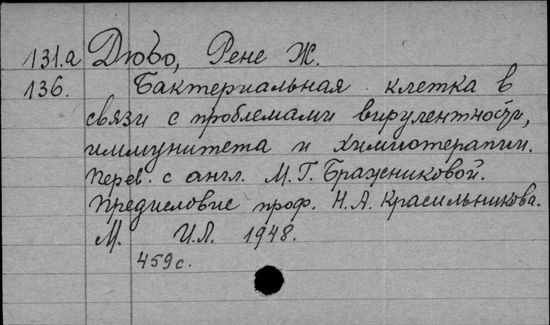 131.а Дюбо, Рене Ж.
136. Бактериальная клетка в
связи с проблемами вирулентности,
иммунитета и химиотерапии.
Перев. с англ. М.Г. Бражниковой.
Предисловие проф. Н.А. Красильникова.
М. И.Л. 1948.
459 с.